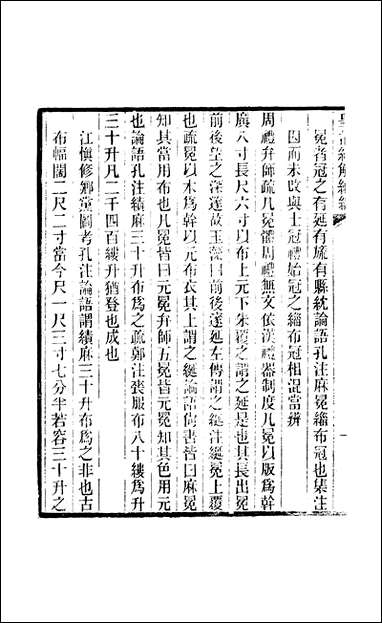 皇清經解續編
冕者冠之有延有旒有縣紞論語孔注麻冕緇布冠也集注
因而未改與士冠禮始冠之緇布冠相混當辨
周禮弁師疏凡冕體周禮無文依漢禮器制度凡冕以版爲幹
廣八寸長尺六寸以布上元下朱覆之謂之延是也其長出冕
前後望之深邃故玉藻曰前後邃延左傳謂之綖注綖冕上覆
也疏以木爲幹以元布衣其上謂之綖論語尙書皆曰麻冕
知其當用布也凡冕皆曰元冕弁師五冕皆元冕知其色用元
也論語孔注績麻三十升布爲之疏鄭注喪服布八十縷爲升
三十升凡二千四百縷升猶登也成也
江愼修鄕黨圖考孔注論語謂績麻三十升布爲之非也古
布幅闊二尺二寸當今尺一尺三寸七分半若容三十升之